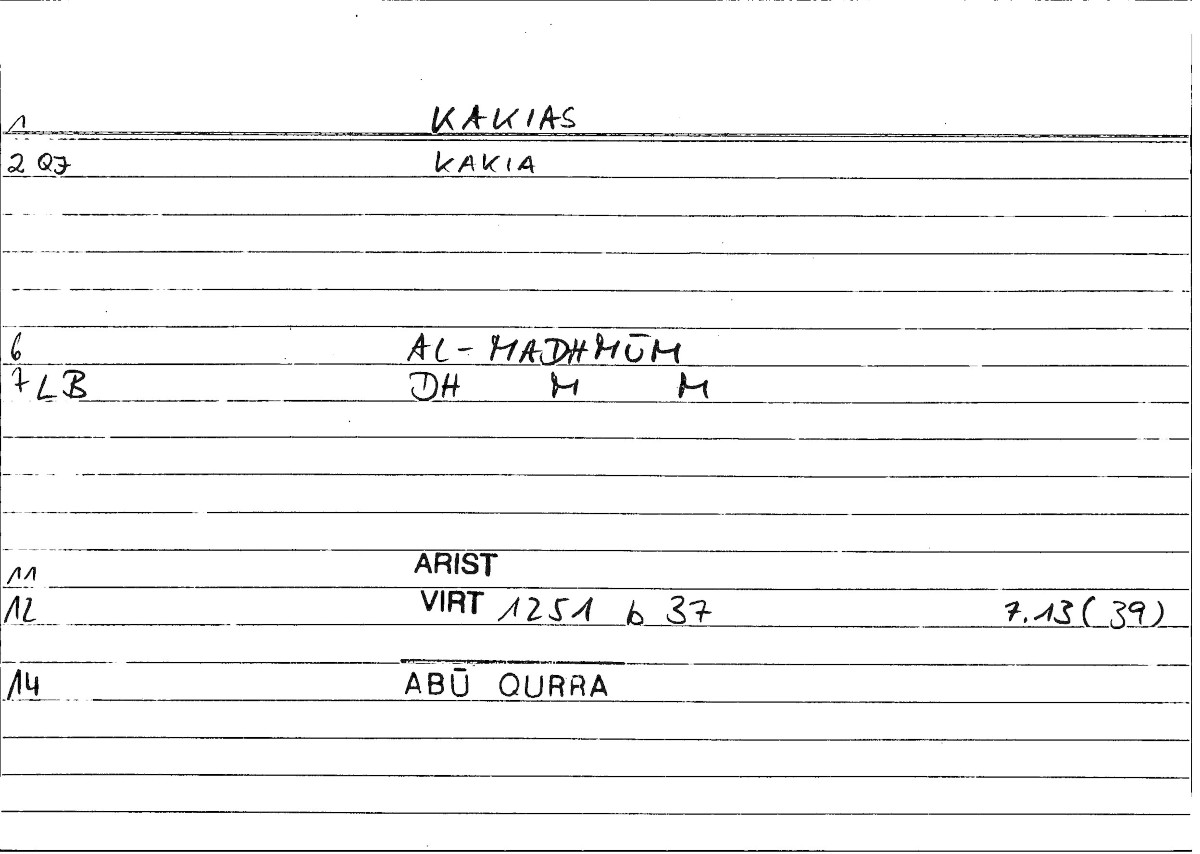 1 KAKIAS
2 QJ KAKIA
6 AL-MADHMŪM
7 LB DH M M
11 ARIST
12 VIRT 1251 b 37 7.13(39)
14 ABŪ QURRA